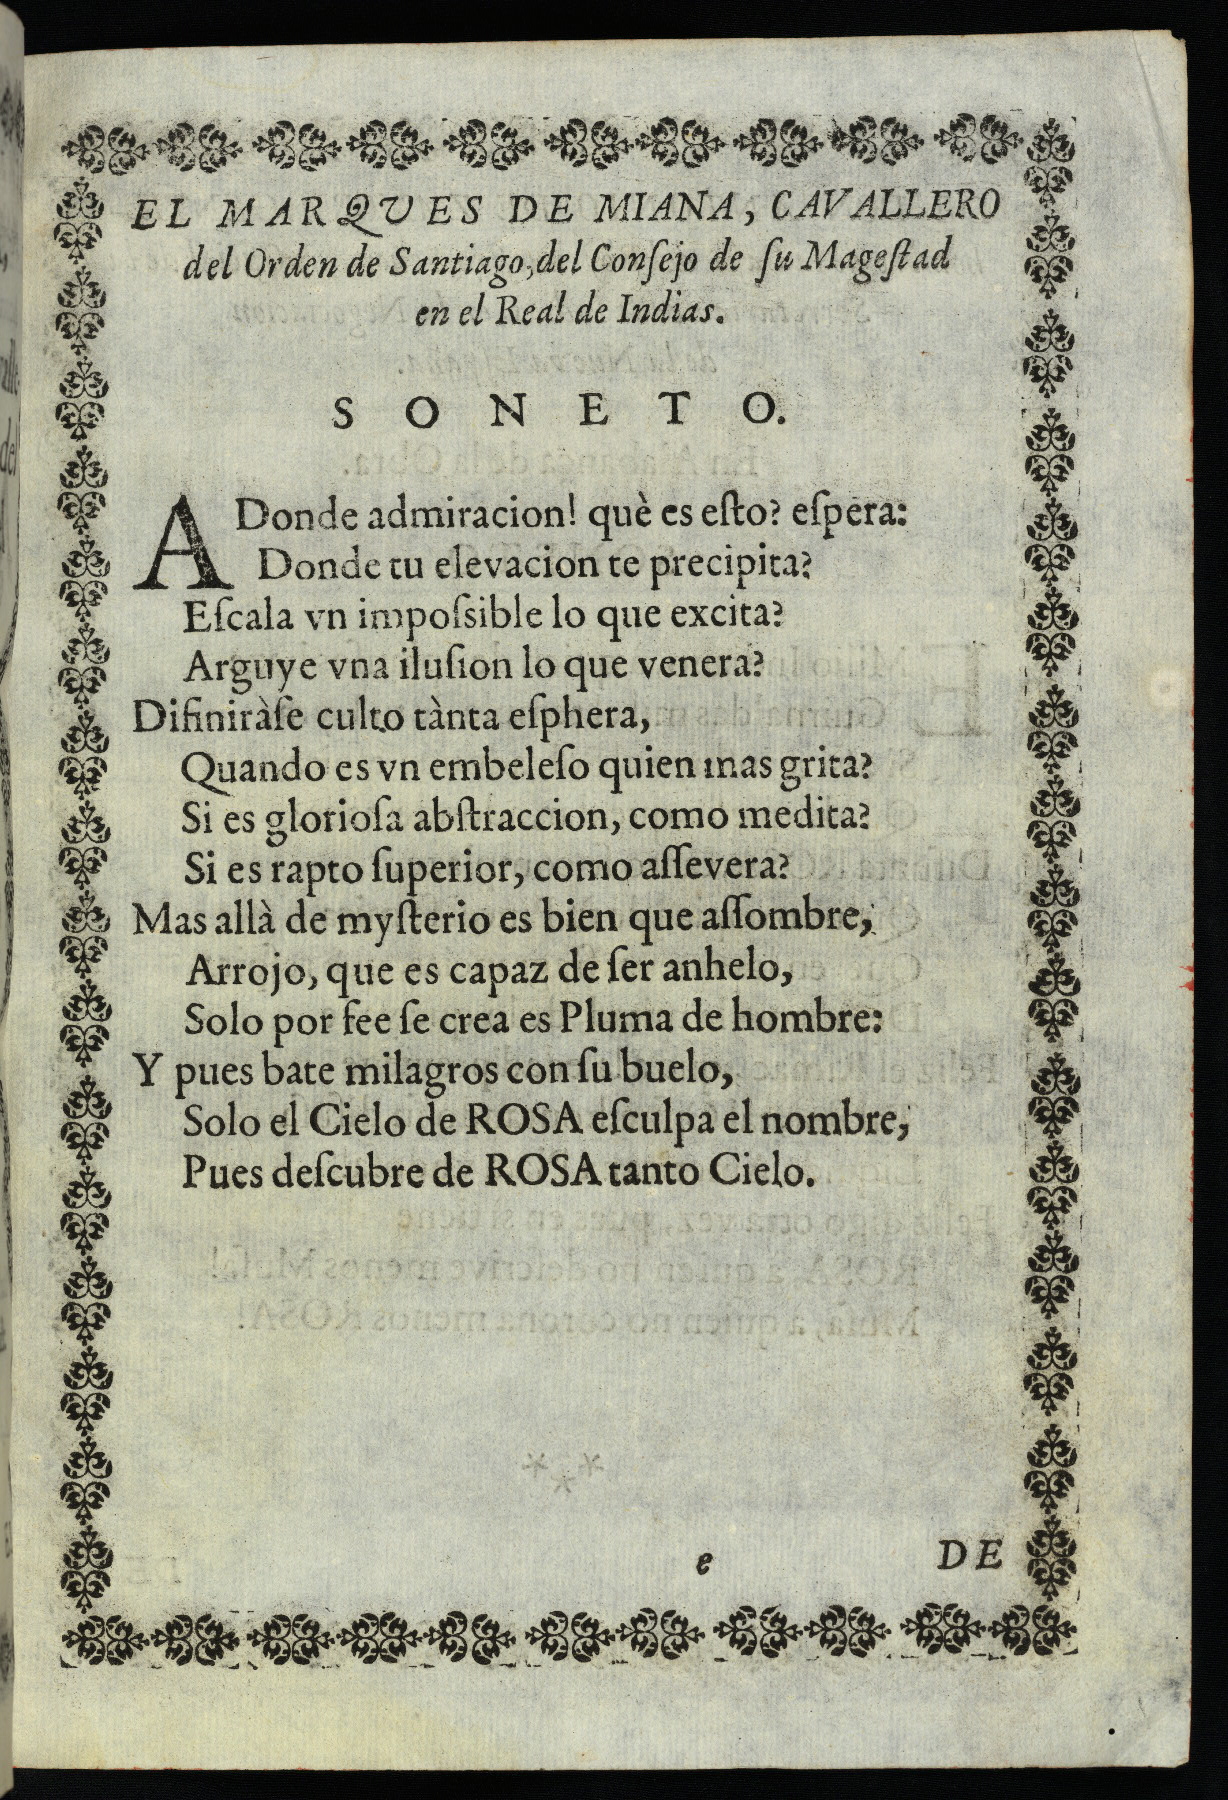 EL MARQVES DE MIANA, CAVALLERO
del Orden de Santiago, del Conſejo de ſu Mageſtad
en el Real de Indias.
SONETO.
A Donde admiracion! què es eſto? eſpera:
Donde tu elevacion te precipita?
Eſcala vn impoſsible lo que excita?
Arguye vna iluſion lo que venera?
Difiniràſe culto tànta eſphera,
Quando es vn embeleſo quien mas grita?
Si es glorioſa abſtraccion, como medita?
Si es rapto ſuperior, como aſſevera?
Mas allà de myſterio es bien que aſſombre,
Arrojo, que es capaz de ſer anhelo,
Solo por fee ſe crea es Pluma de hombre:
Y pues bate milagros con ſu buelo,
Solo el Cielo de ROSA eſculpa el nombre,
Pues deſcubre de ROSA tanto Cielo.
e DE